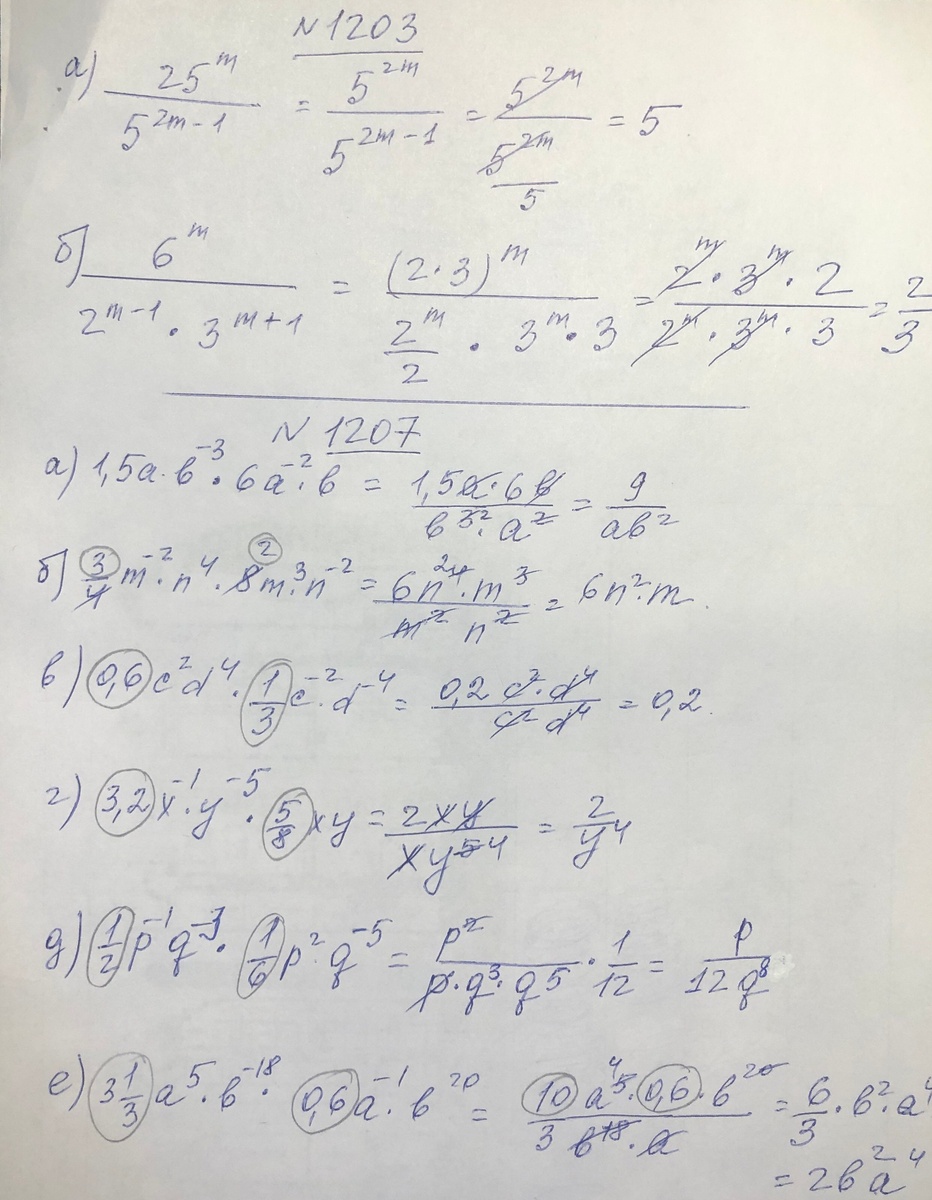 N 1203
а) 25^m / 5^(2m-1) = 5^(2m) / 5^(2m-1) = 5^(2m) / (5^(2m) / 5) = 5
б) 6^m / (2^(m-1) · 3^(m+1)) = (2·3)^m / ((2^m / 2) · 3^m · 3) = (2^m · 3^m · 2) / (2^m · 3^m · 3) = 2/3
N 1207
а) 1,5a·b^-3 · 6a^-2·b = (1,5a·6b) / (b^3 2·a^2) = 9 / (ab^2)
б) 3/4 m^-2·n^4 · 8 2 m^3·n^-2 = (6n^4 2·m^3) / (m^2 n^2) = 6n^2·m.
в) 0,6 c^2d^4 · 1/3 c^-2·d^-4 = (0,2 c^2·d^4) / (c^2 d^4) = 0,2.
г) 3,2 x^-1·y^-5 · 5/8 xy = 2xy / (xy^5 4) = 2 / y^4
д) 1/2 p^-1 q^-3 · 1/6 p^2·q^-5 = p^2 / (p·q^3·q^5) · 1/12 = p / (12q^8)
е) 3 1/3 a^5·b^-18 · 0,6 a^-1·b^20 = (10 a^5 4·0,6·b^20) / (3 b^18·a) = 6/3 · b^2·a^4
= 2b^2 a^4